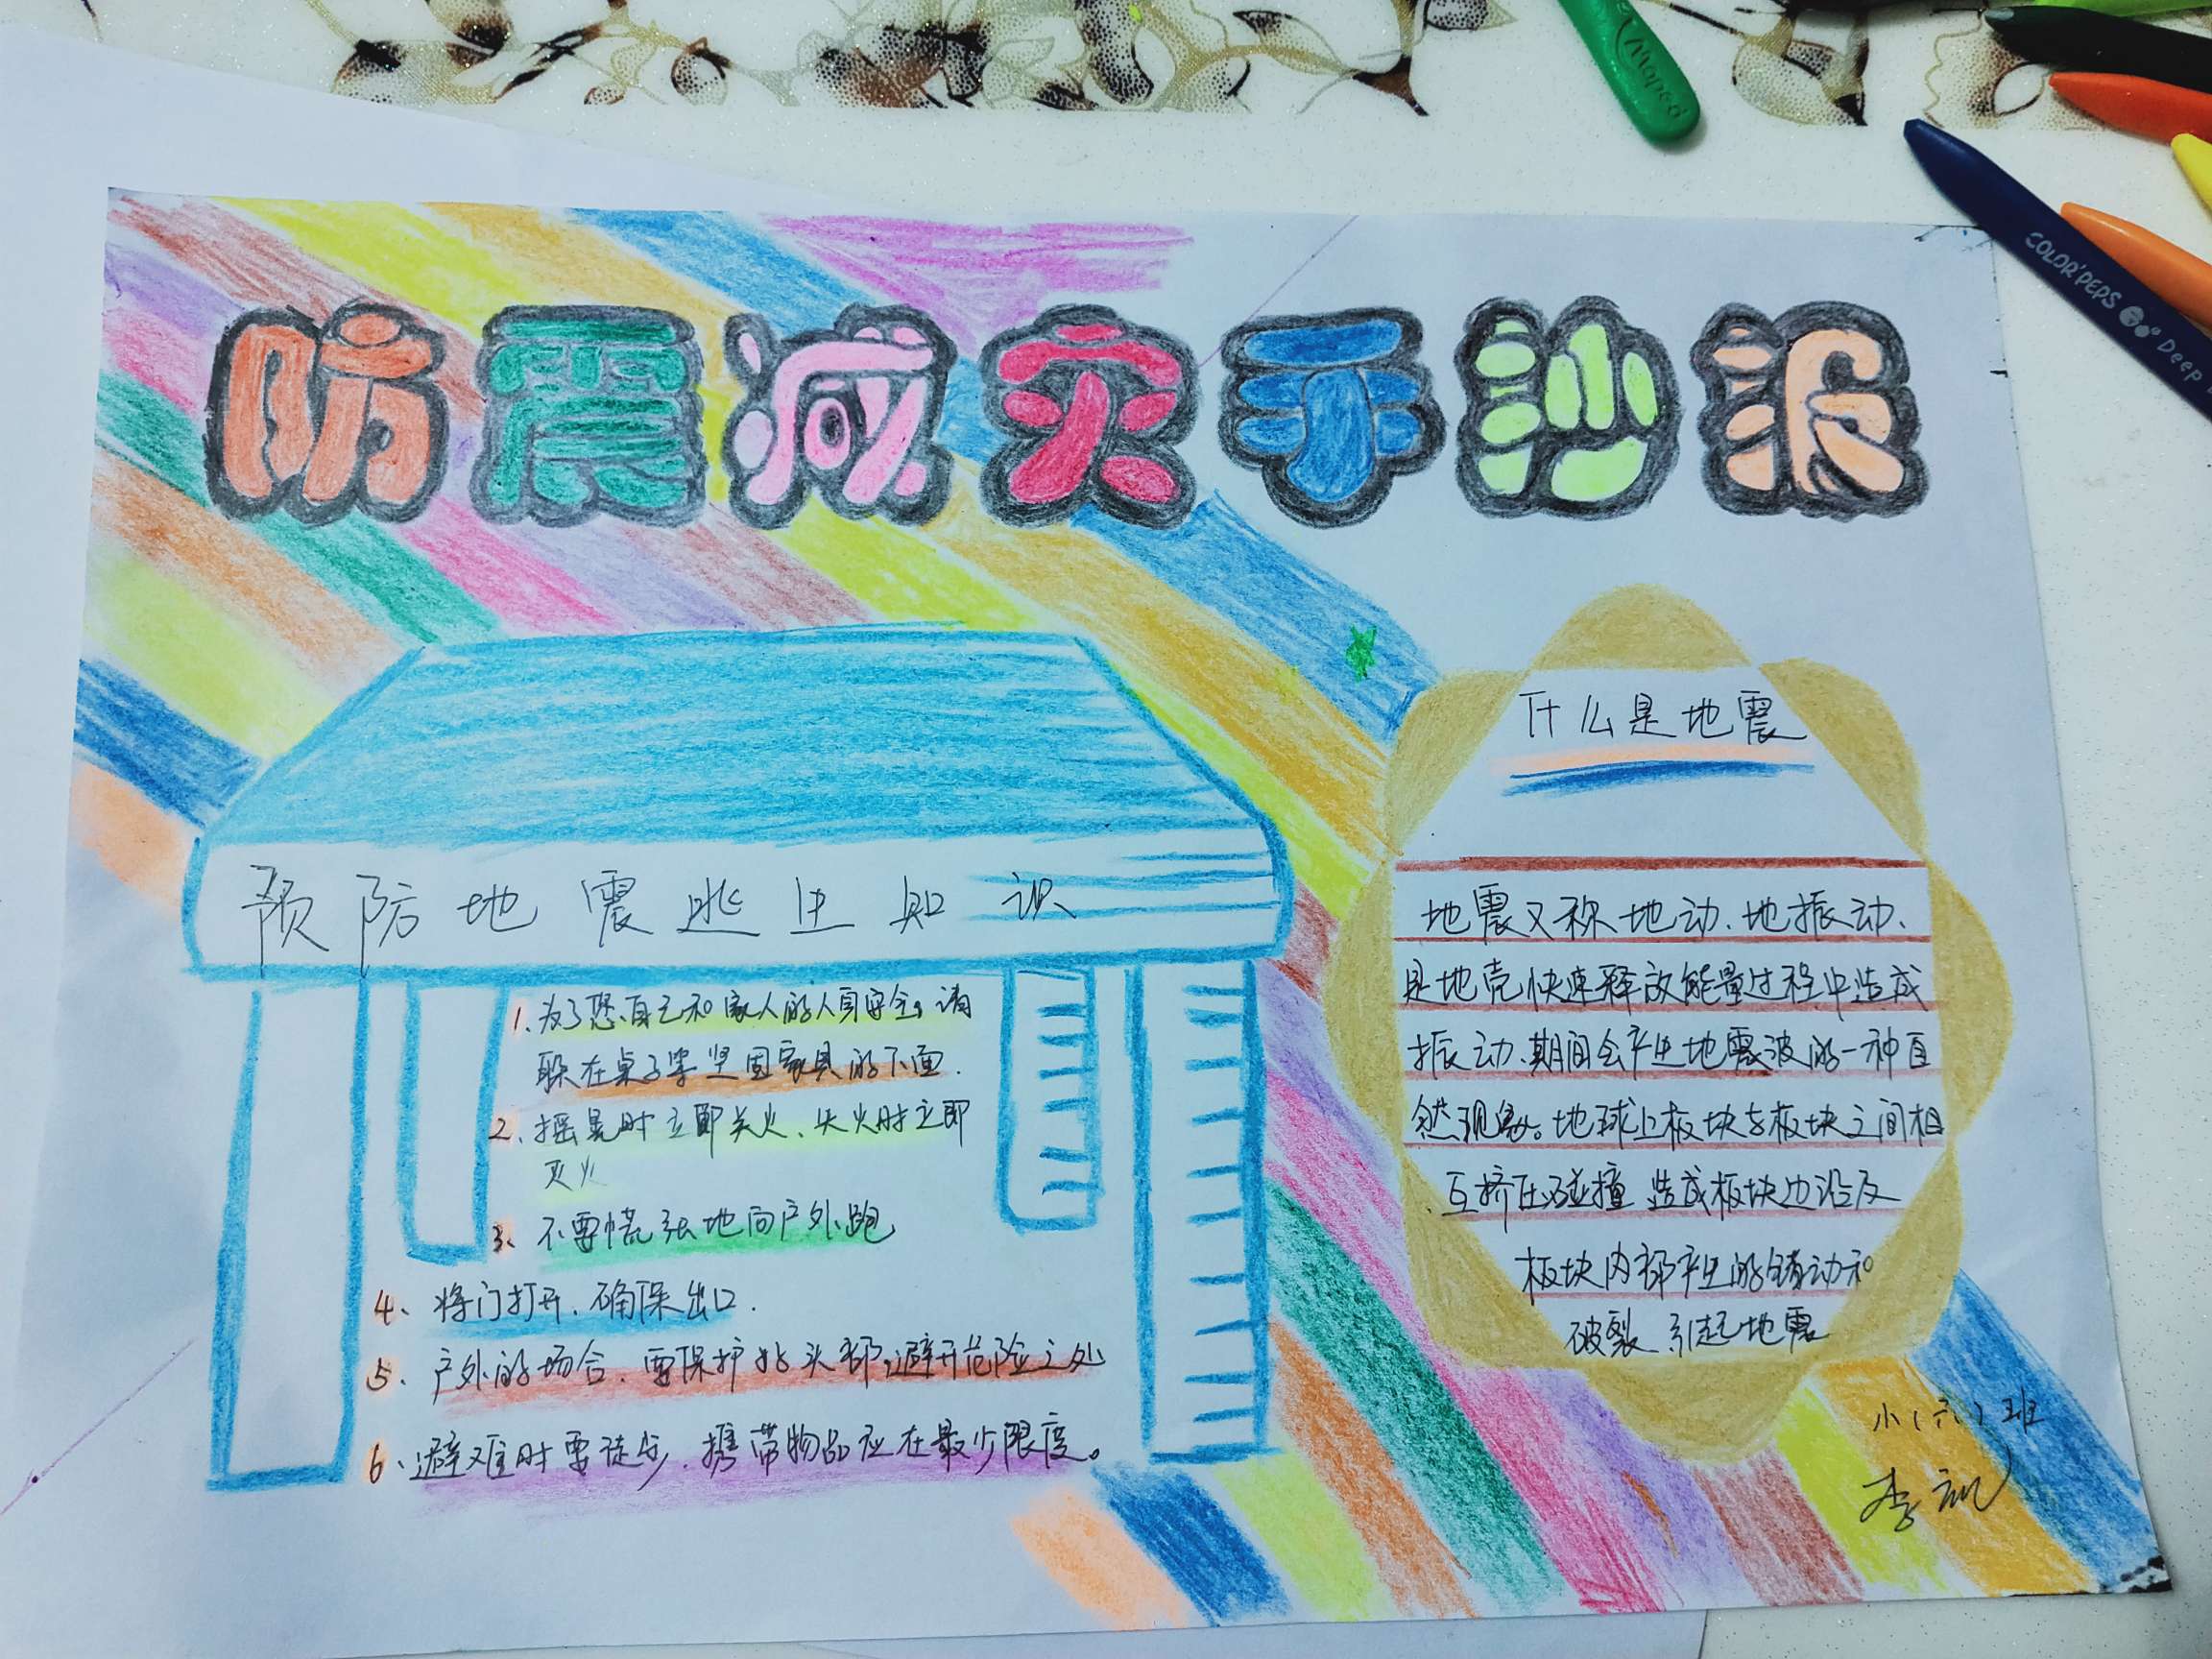 防震减灾手沙报
什么是地震
地震又称地动、地振动、
是地壳快速释放能量过程中造成
振动、期间会产生地震波的一种自
然现象。地球上板块与板块之间相
互挤压碰撞 造成板块边沿及
板块内部产生的错动和
破裂 引起地震
预防地震逃生知识
1、为了您自己和家人的人身安全,请
躲在桌子等坚固家具的下面.
2、摇晃时立即关火、失火时立即
灭火
3、不要慌张地向户外跑
4、将门打开、确保出口.
5、户外的场合、要保护好头部,避开危险之处
6、避难时要徒步、携带物品应在最少限度。
小(六)班
李
Maped
COLOR'PEPS
Deep